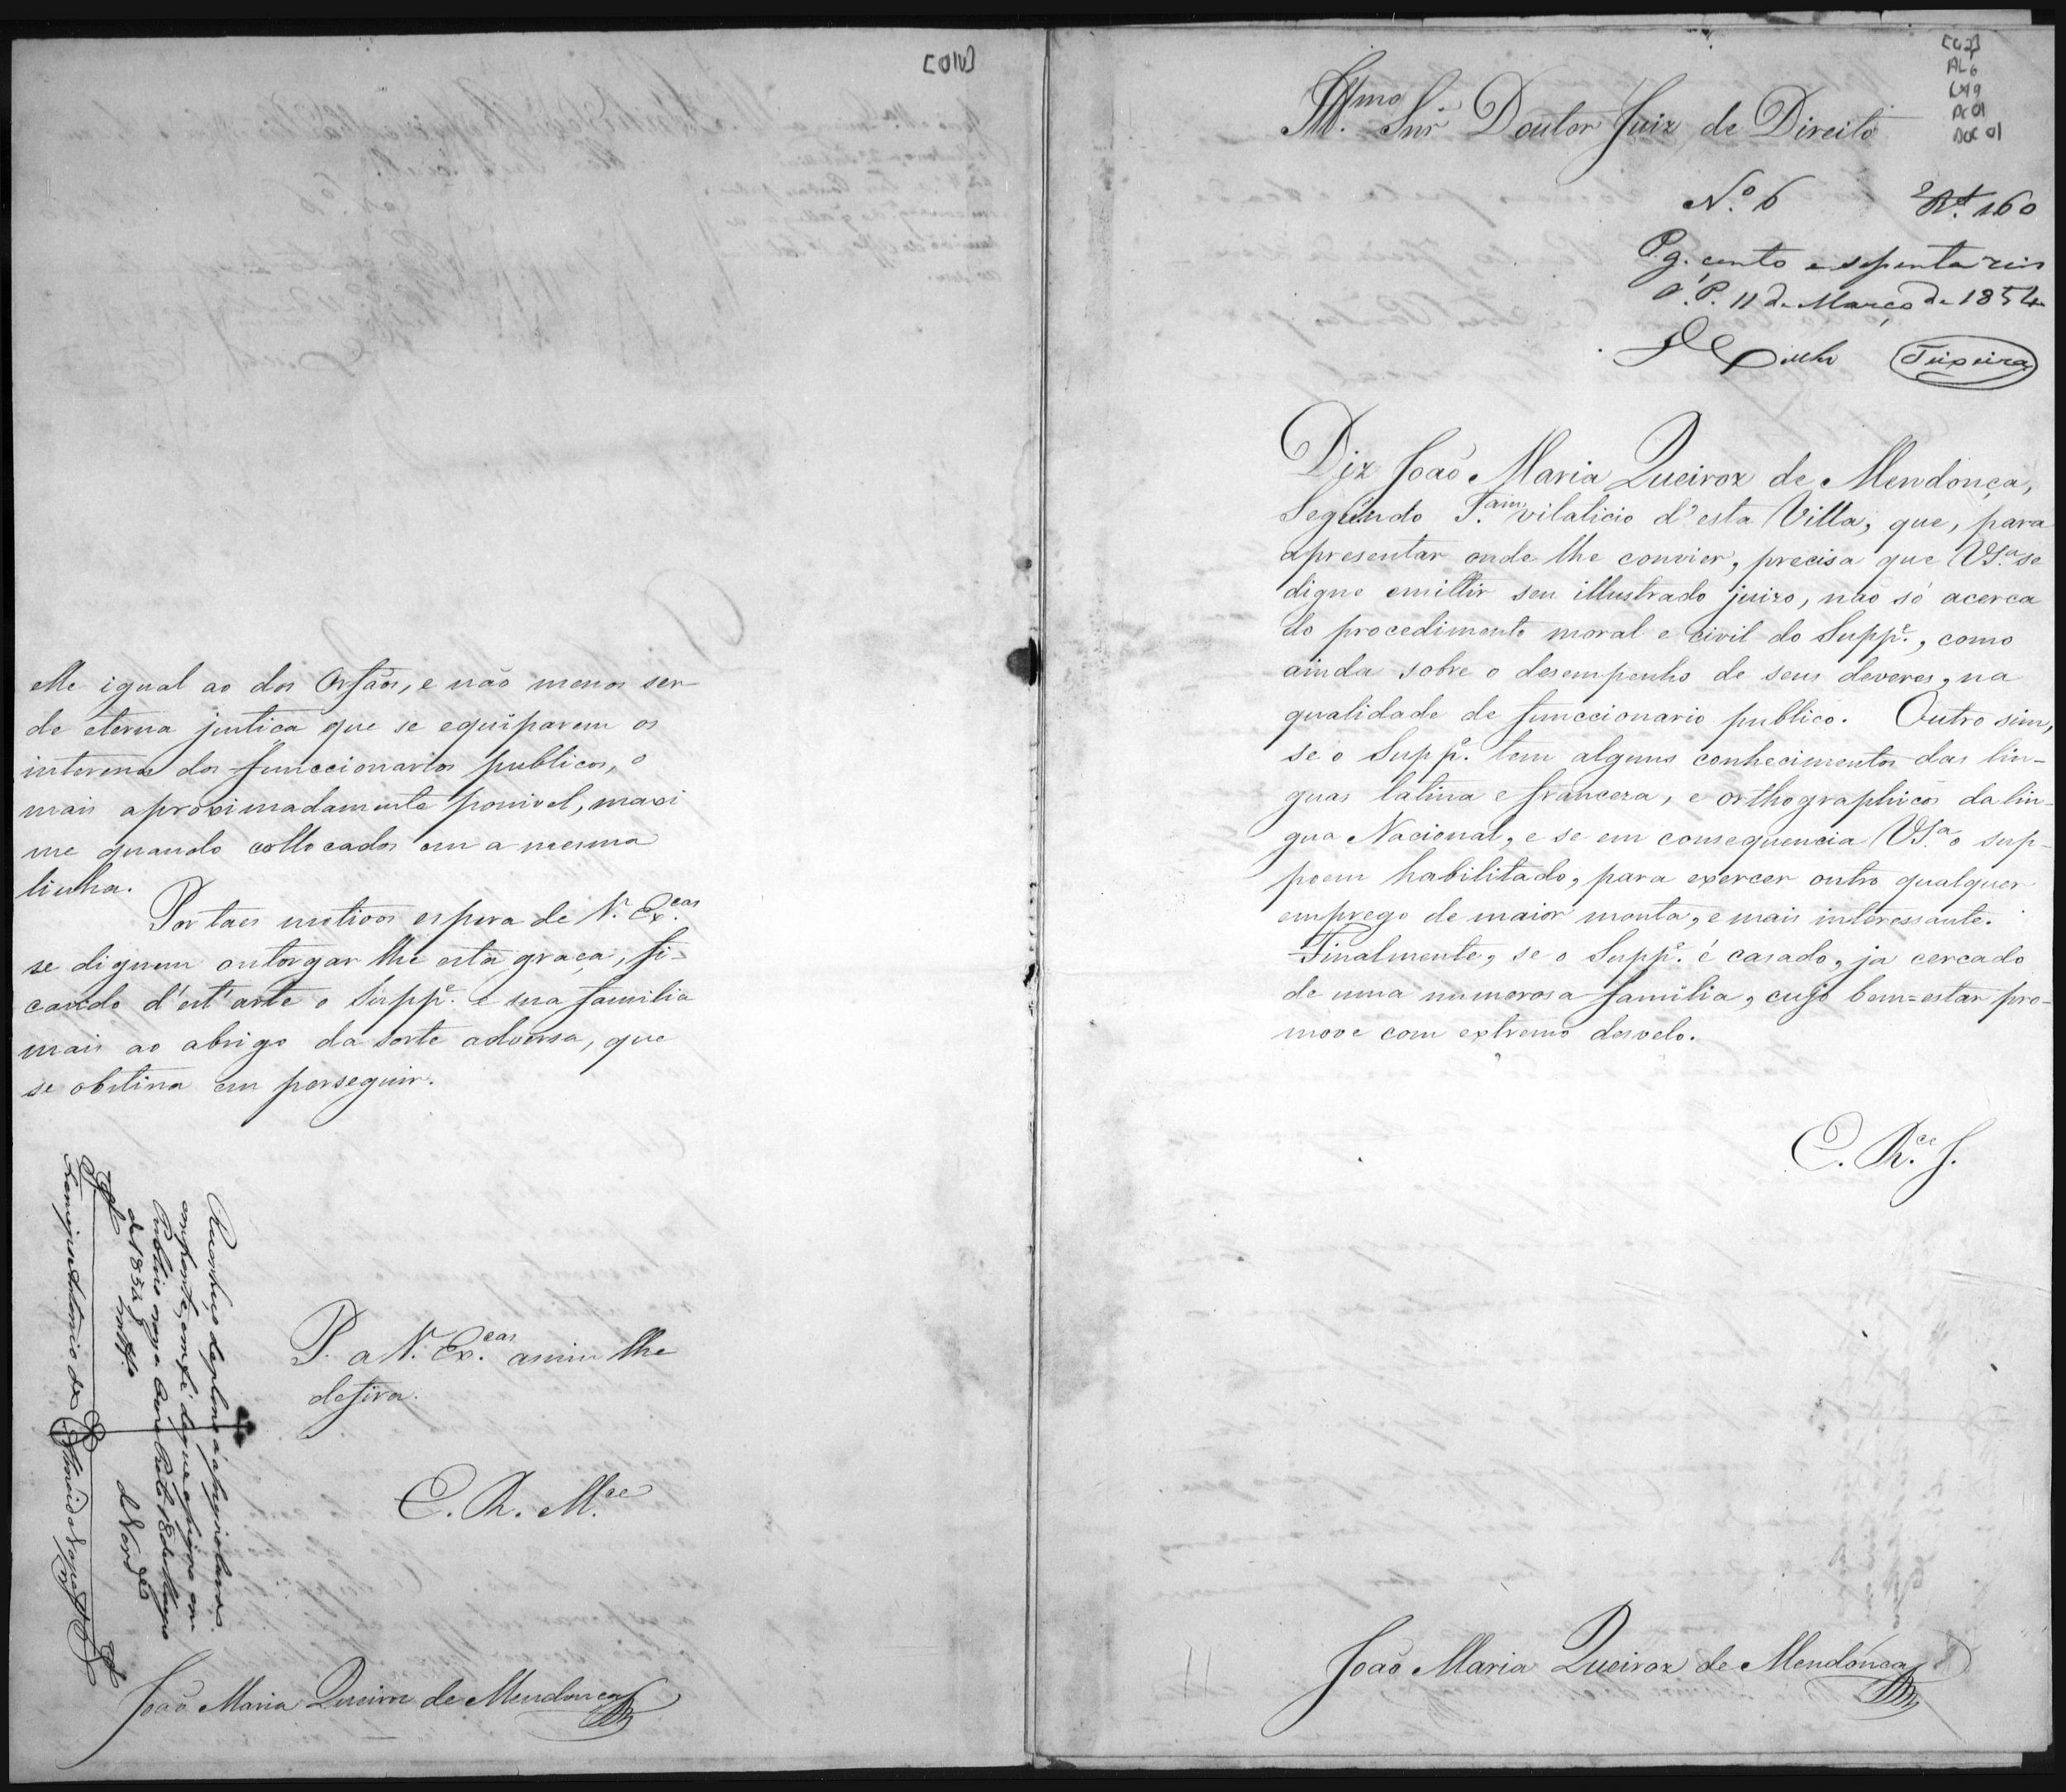 [01v]
elle igual ao dos Orfãos, e não menos ser
de eterna justiça que se equiparem os
interesses dos funccionarios publicos, o
mais aproximadamente possivel, maxi
me quando collocados em a mesma
linha.
Por taes motivos espera de V. Ex.cas
se dignem outorgar lhe esta graça, fi-
cando d'est'arte o Supp.e e sua familia
mais ao abrigo da sorte adversa, que
se obstina em perseguir.
P. a V. Ex.cas assim lhe
defira.
E. R. M.ce
Reconheço a propria
em fé do que assigno em
Publico e raso
de 1854
João Maria Queiroz de Mendonça
[02]
AL 6
Doc 01
Ill.mo Snr. Doutor Juiz de Direito
N.º 6 160
Pg. cento e sessenta reis
O. P. 11 de Março de 1854
Teixeira
Diz João Maria Queiroz de Mendonça,
Segundo T.am vitalicio d'esta Villa, que, para
apresentar onde lhe convier, precisa que V.S.a se
digne emittir seu illustrado juizo, não só acerca
do procedimento moral e civil do Supp.e, como
ainda sobre o desempenho de seus deveres, na
qualidade de funccionario publico. Outro sim,
se o Supp.e tem alguns conhecimentos das lin-
guas latina e franceza, e orthographicos da lin-
gua Nacional, e se em consequencia V.S.a o sup-
poem habilitado, para exercer outro qualquer
emprego de maior monta, e mais interessante.
Finalmente, se o Supp.e é casado, ja cercado
de uma numerosa familia, cujo bem=estar pro-
move com extremo desvelo.
E. R.ce J.
João Maria Queiroz de Mendonça